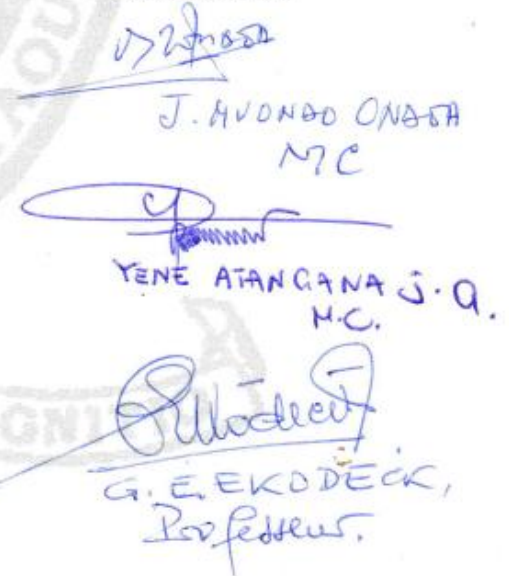 J. MVONDO ONDOA
MC
YENE ATANGANA J. Q.
M.C.
G. E. EKODECK,
Professeur.